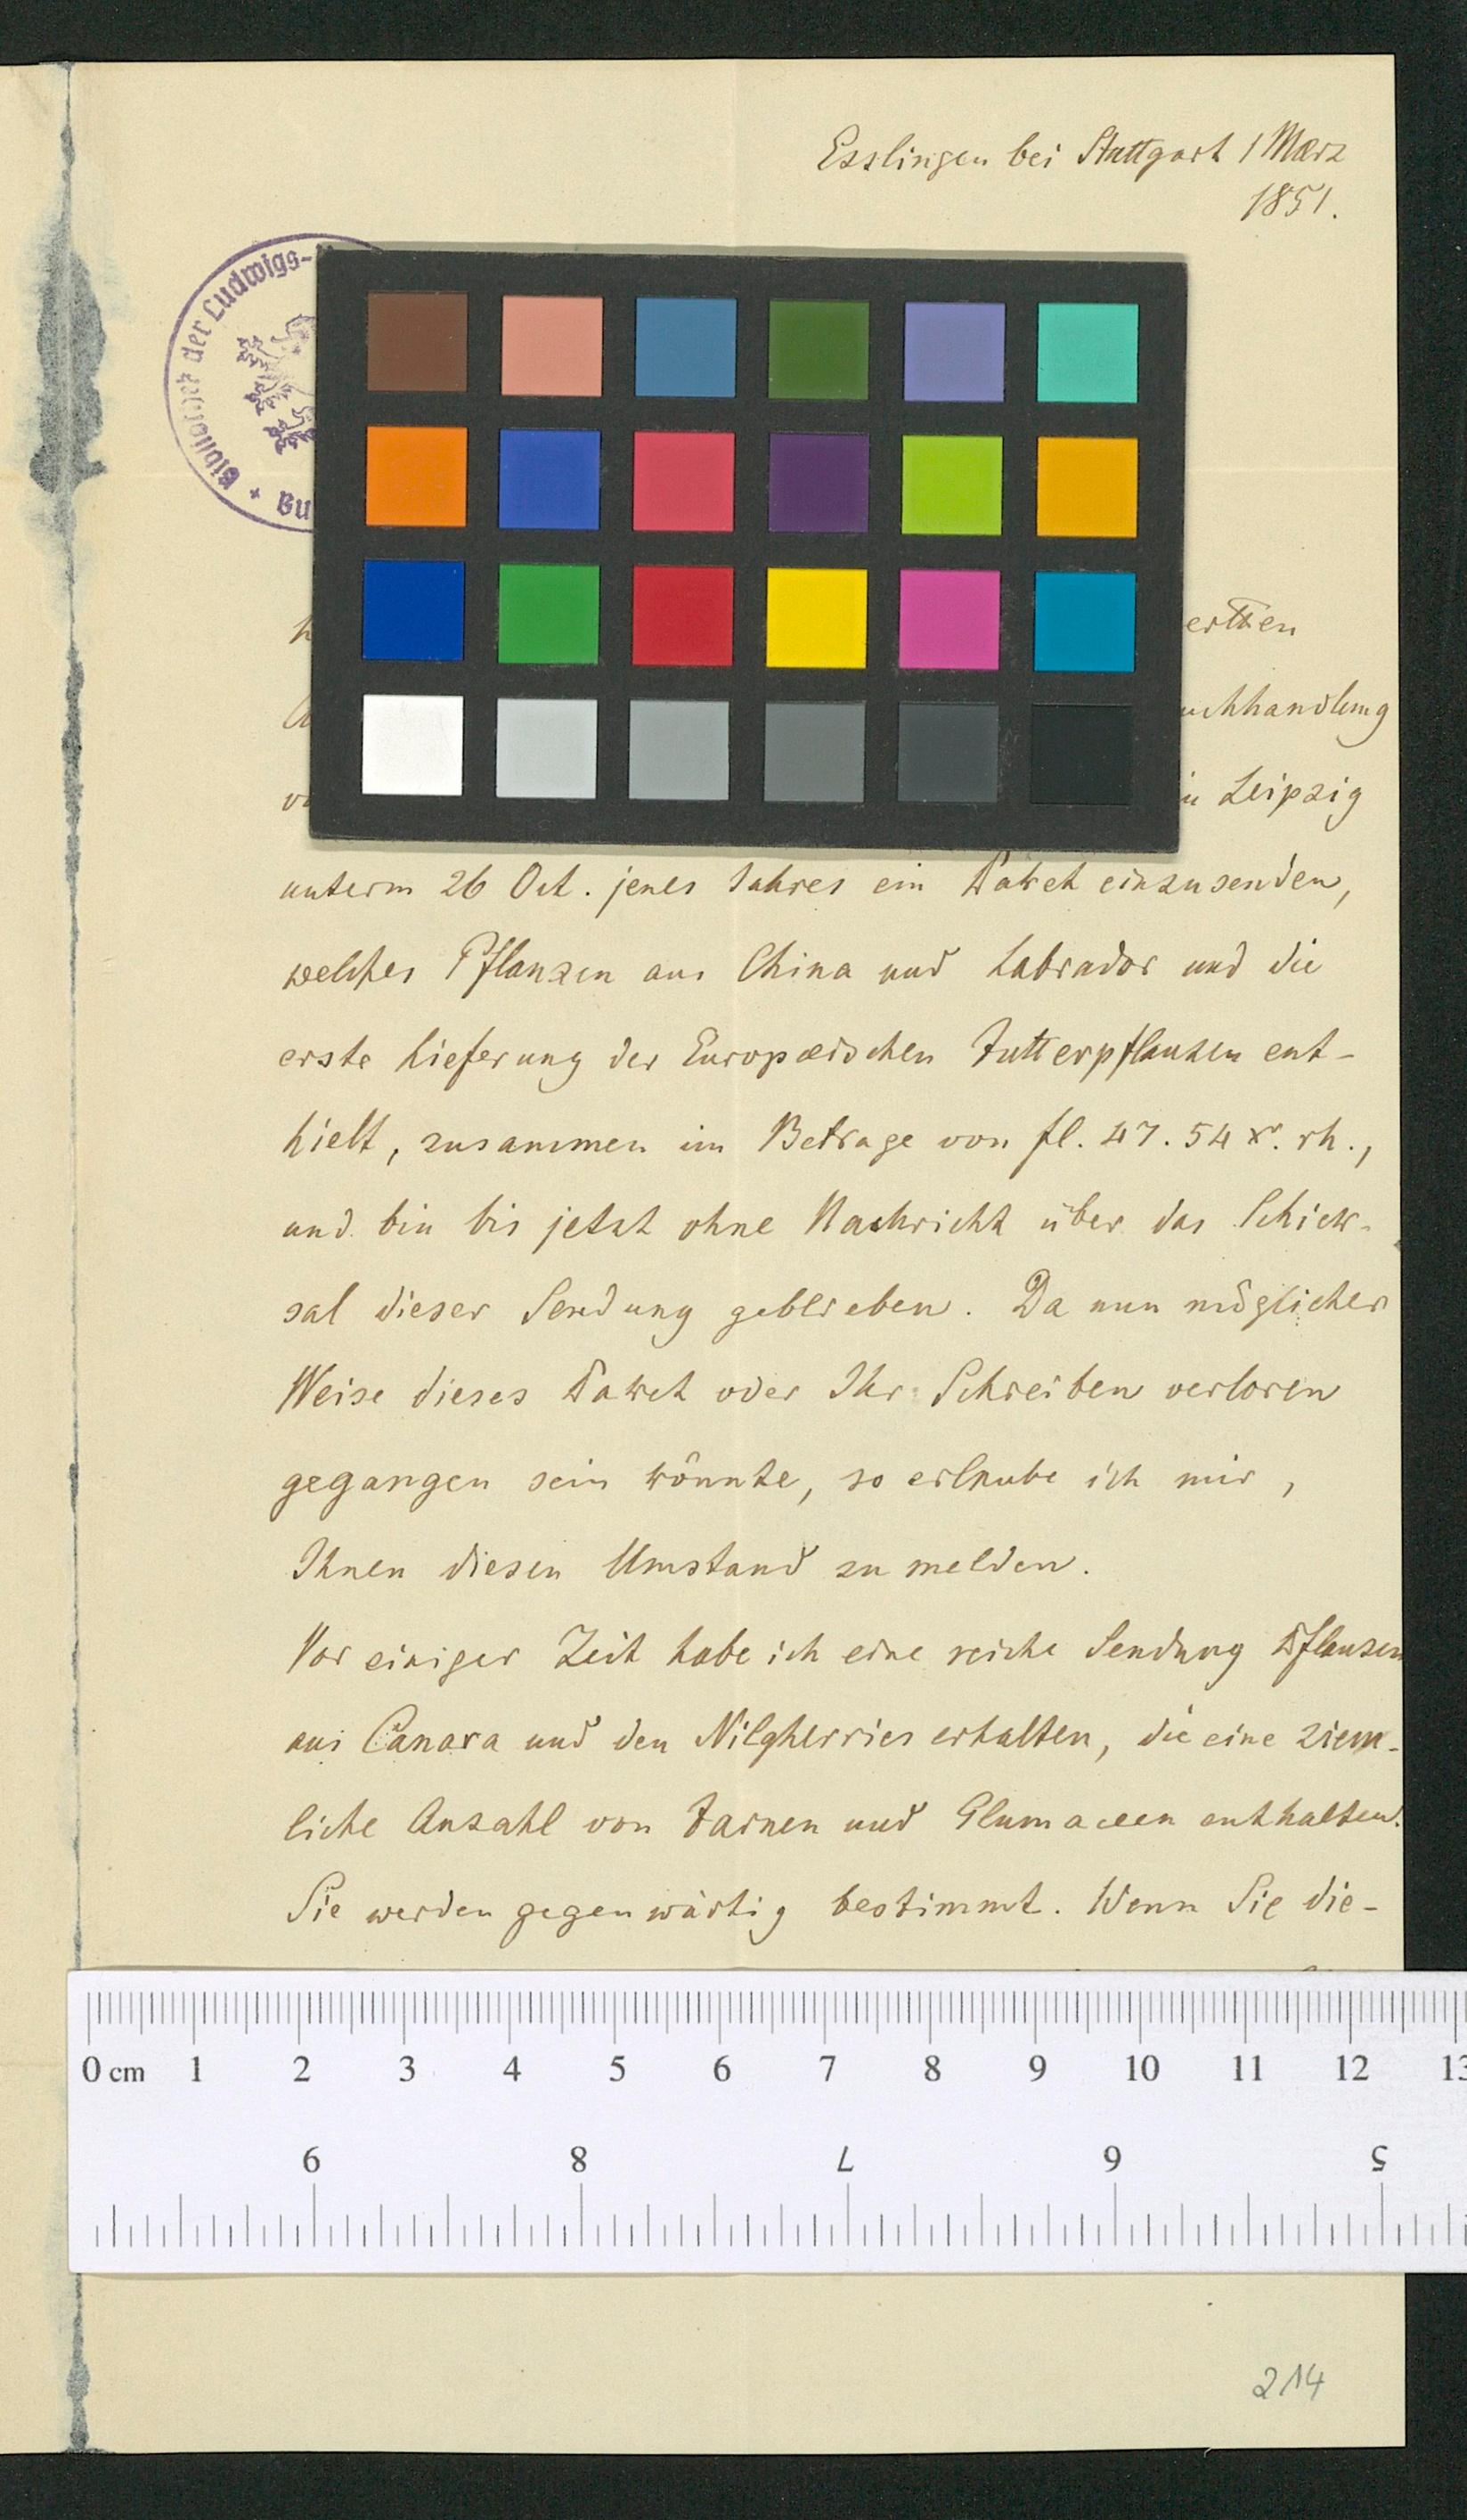 Esslingen bei Stuttgart 1 Mærz
1851.
Bibliothek der Ludwigs-
erthen
uchhandlung
in Leipzig
unterm 26 Oct. jenes Jahres ein Paket einzusenden,
welches Pflanzen aus China und Labrador und die
erste Lieferung der Europæischen Futterpflanzen ent-
hielt, zusammen im Betrage von fl. 47. 54 xr. rh.,
und bin bis jetzt ohne Nachricht über das Schick-
sal dieser Sendung geblieben. Da nun möglicher
Weise dieses Paket oder Ihr Schreiben verloren
gegangen sein könnte, so erlaube ich mir,
Ihnen diesen Umstand zu melden.
Vor einiger Zeit habe ich eine reiche Sendung Pflanzen
aus Canara und den Nilgherries erhalten, die eine ziem-
liche Anzahl von Farnen und Glumaceen enthalten.
Sie werden gegenwärtig bestimmt. Wenn Sie die-
0 cm 1 2 3 4 5 6 7 8 9 10 11 12 13
9 8 7 6 5
214